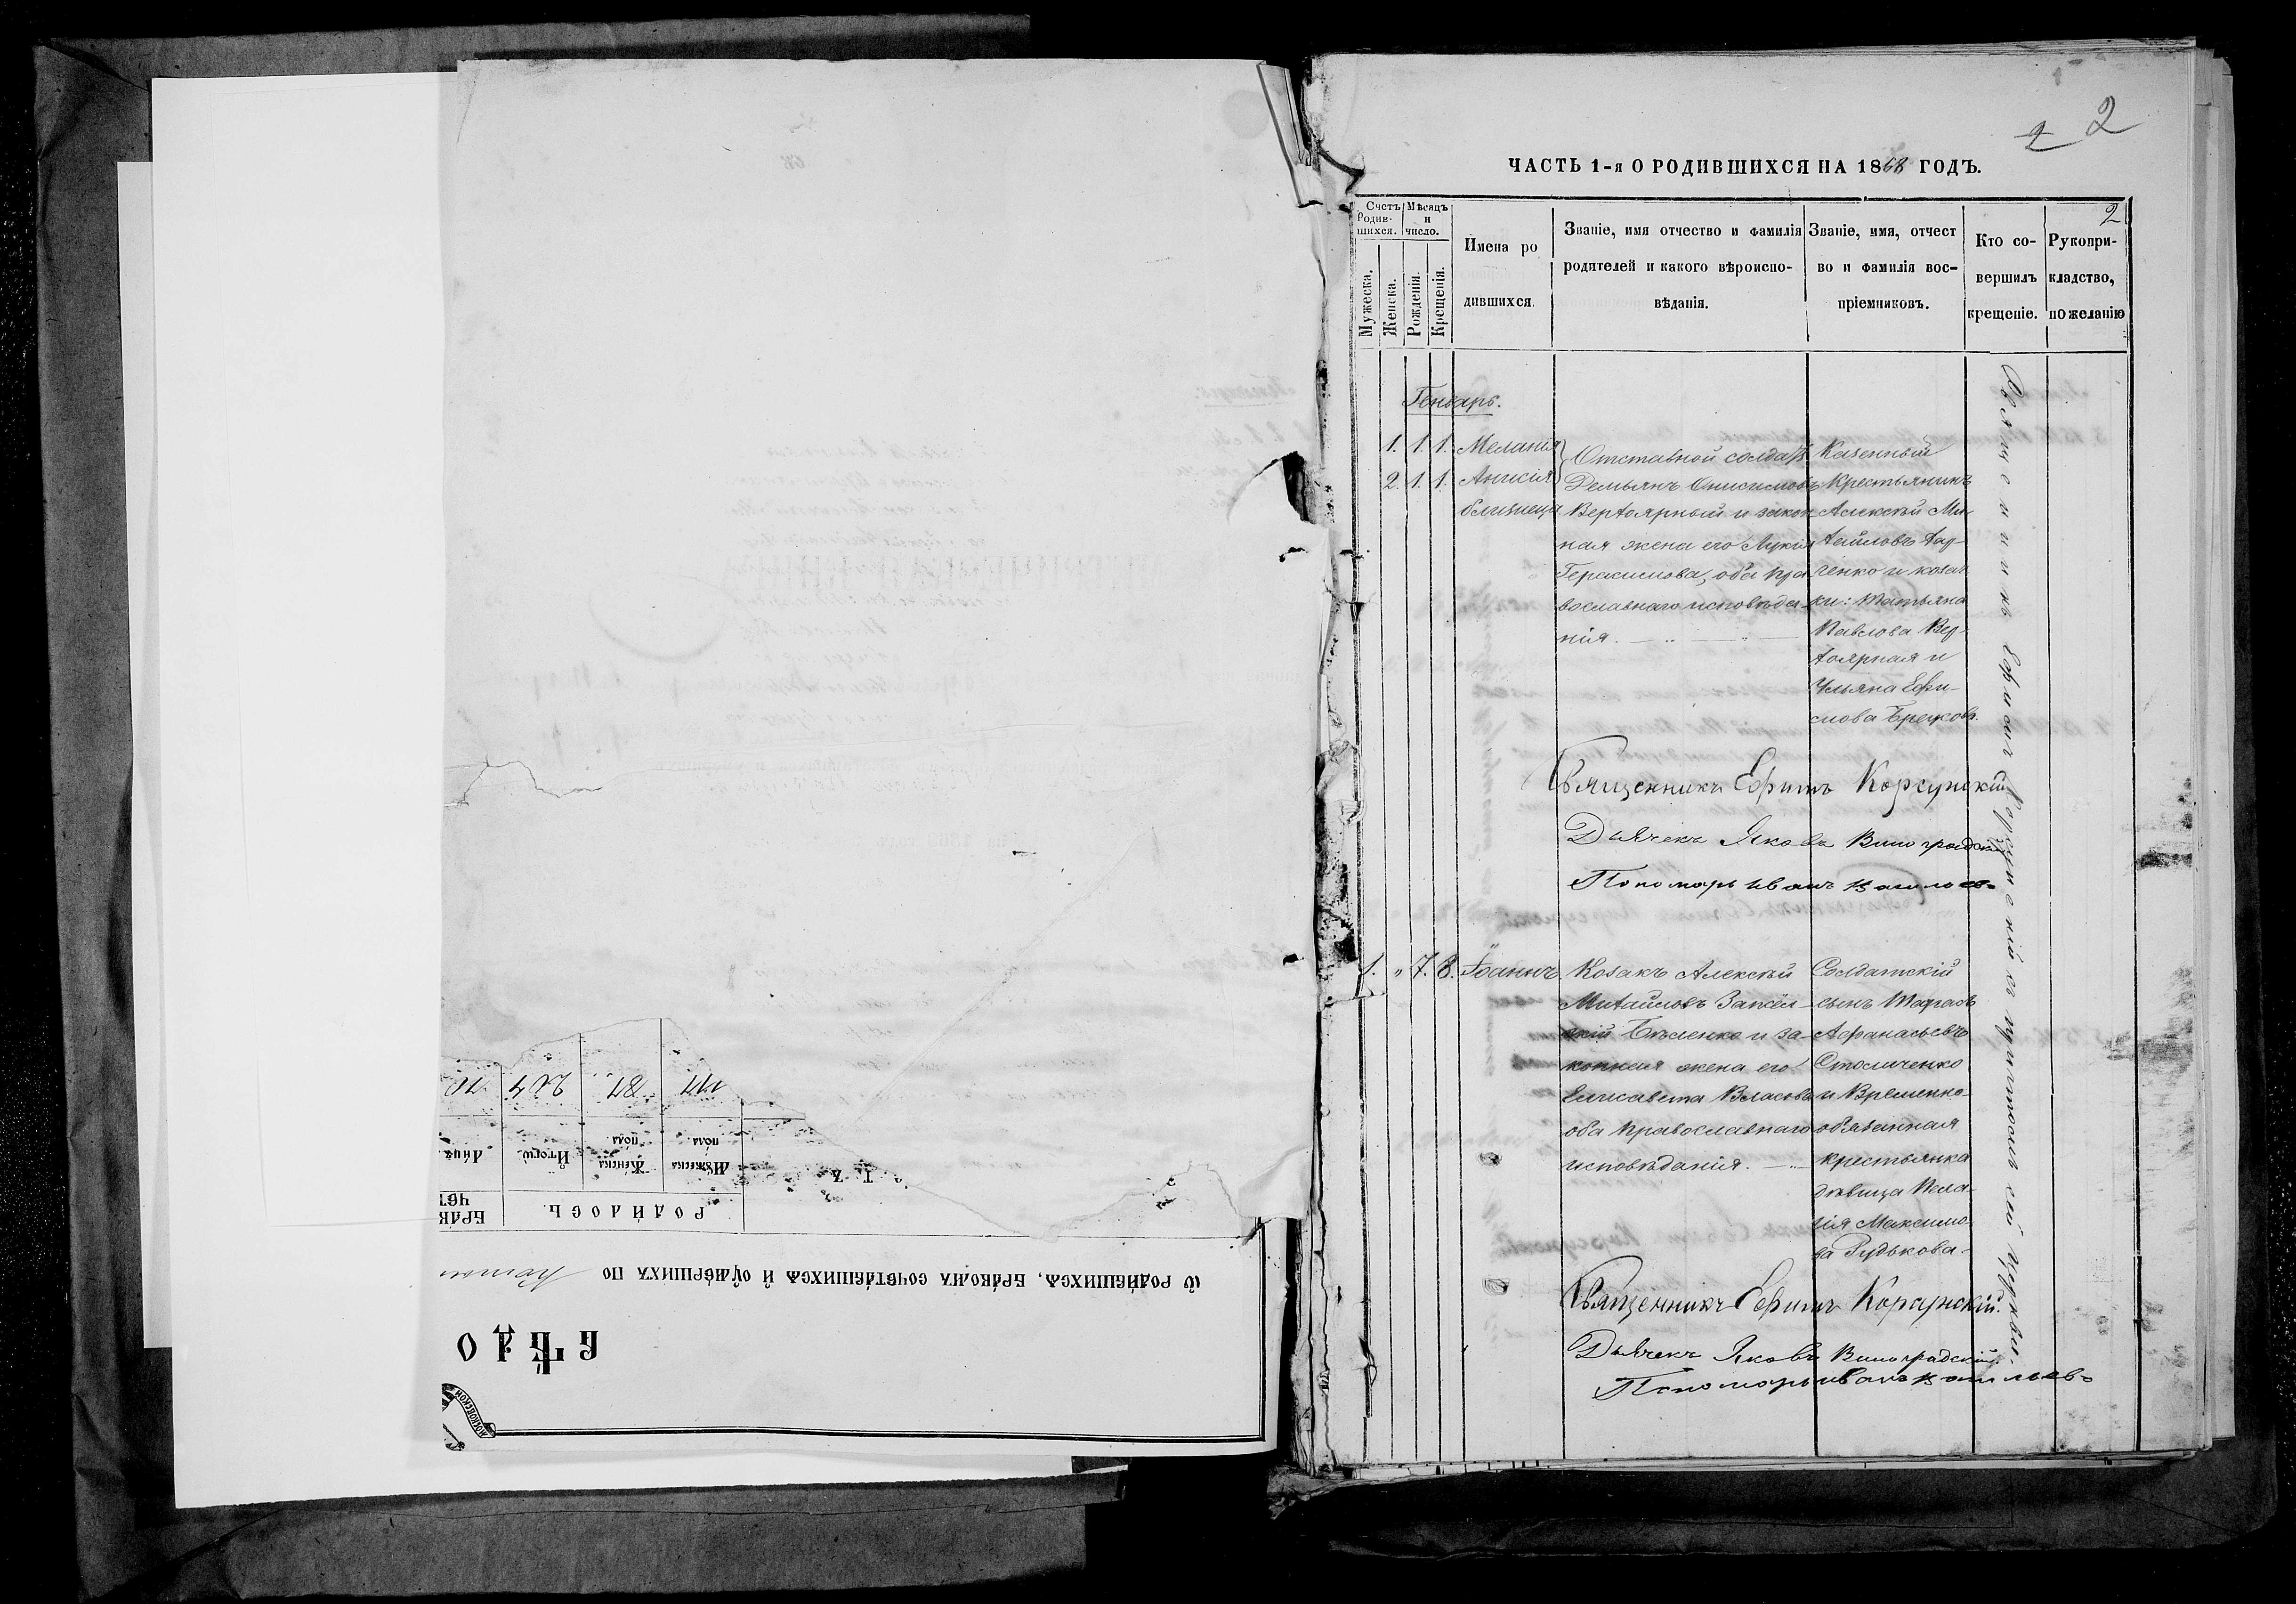 2 2
ЧАСТЬ 1-я О РОДИВШИХСЯ НА 1868 ГОДЪ.
2
Счетъ Родив-шихся.
Мужеска.
Женска.
Мѣсяцъ и число.
Рожденія.
Крещенія.
Имена ро
дившихся.
Званіе, имя отчество и фамилія
родителей и какого вѣроиспо-
вѣданія.
Званіе, имя, отчест
во и фамилія вос-
пріемниковъ.
Кто со-
вершилъ
крещеніе.
Рукопри-
кладство,
по желанію
Генварь.
1. 1. 1. Меланія
2. 1. 1. Анисія
близнецы
Отставной солдатъ
Демьянъ Онисимовъ
Вертоярный и закон
ная жена его Лукія
Герасимова, оба пра
вославнаго исповѣда-
нія.
Казенный
Крестьянинъ
Алексѣй Ми-
хайловъ
ченко и козач
ки: Татьяна
Павлова Вер-
тоярная и
Ульяна Ефи-
мова
Священникъ Ефимъ Корсунскій
Дьячекъ Яковъ Виноградскій
Пономарь Иванъ Васильевъ
1. " 7. 8. Іоаннъ
Козакъ Алексѣй
Михайловъ
скій Бѣленко и за-
конная жена его
Елисавета Власова
оба православнаго
исповѣданія.
Солдатскій
сынъ Тарасъ
Афанасьевъ
Столиченко
и Временно-
обязанная
крестьянка
дѣвица Пела-
гія Максимо-
ва Рудькова.
Священникъ Ефимъ Корсунскій.
Дьячекъ Яковъ Виноградскій.
Пономарь Иванъ Васильевъ
Священникъ Ефимъ Корсунскій съ причтомъ сей церкви.
О РОДИВШИХСЯ, БРАКОМЪ СОЧЕТАВШИХСЯ И УМЕРШИХЪ ПО
РОДИЛОСЬ.
БРАК
Мужеска пола.
Женска пола.
Итого.
177
87
264
МОСКОВСКОЙ